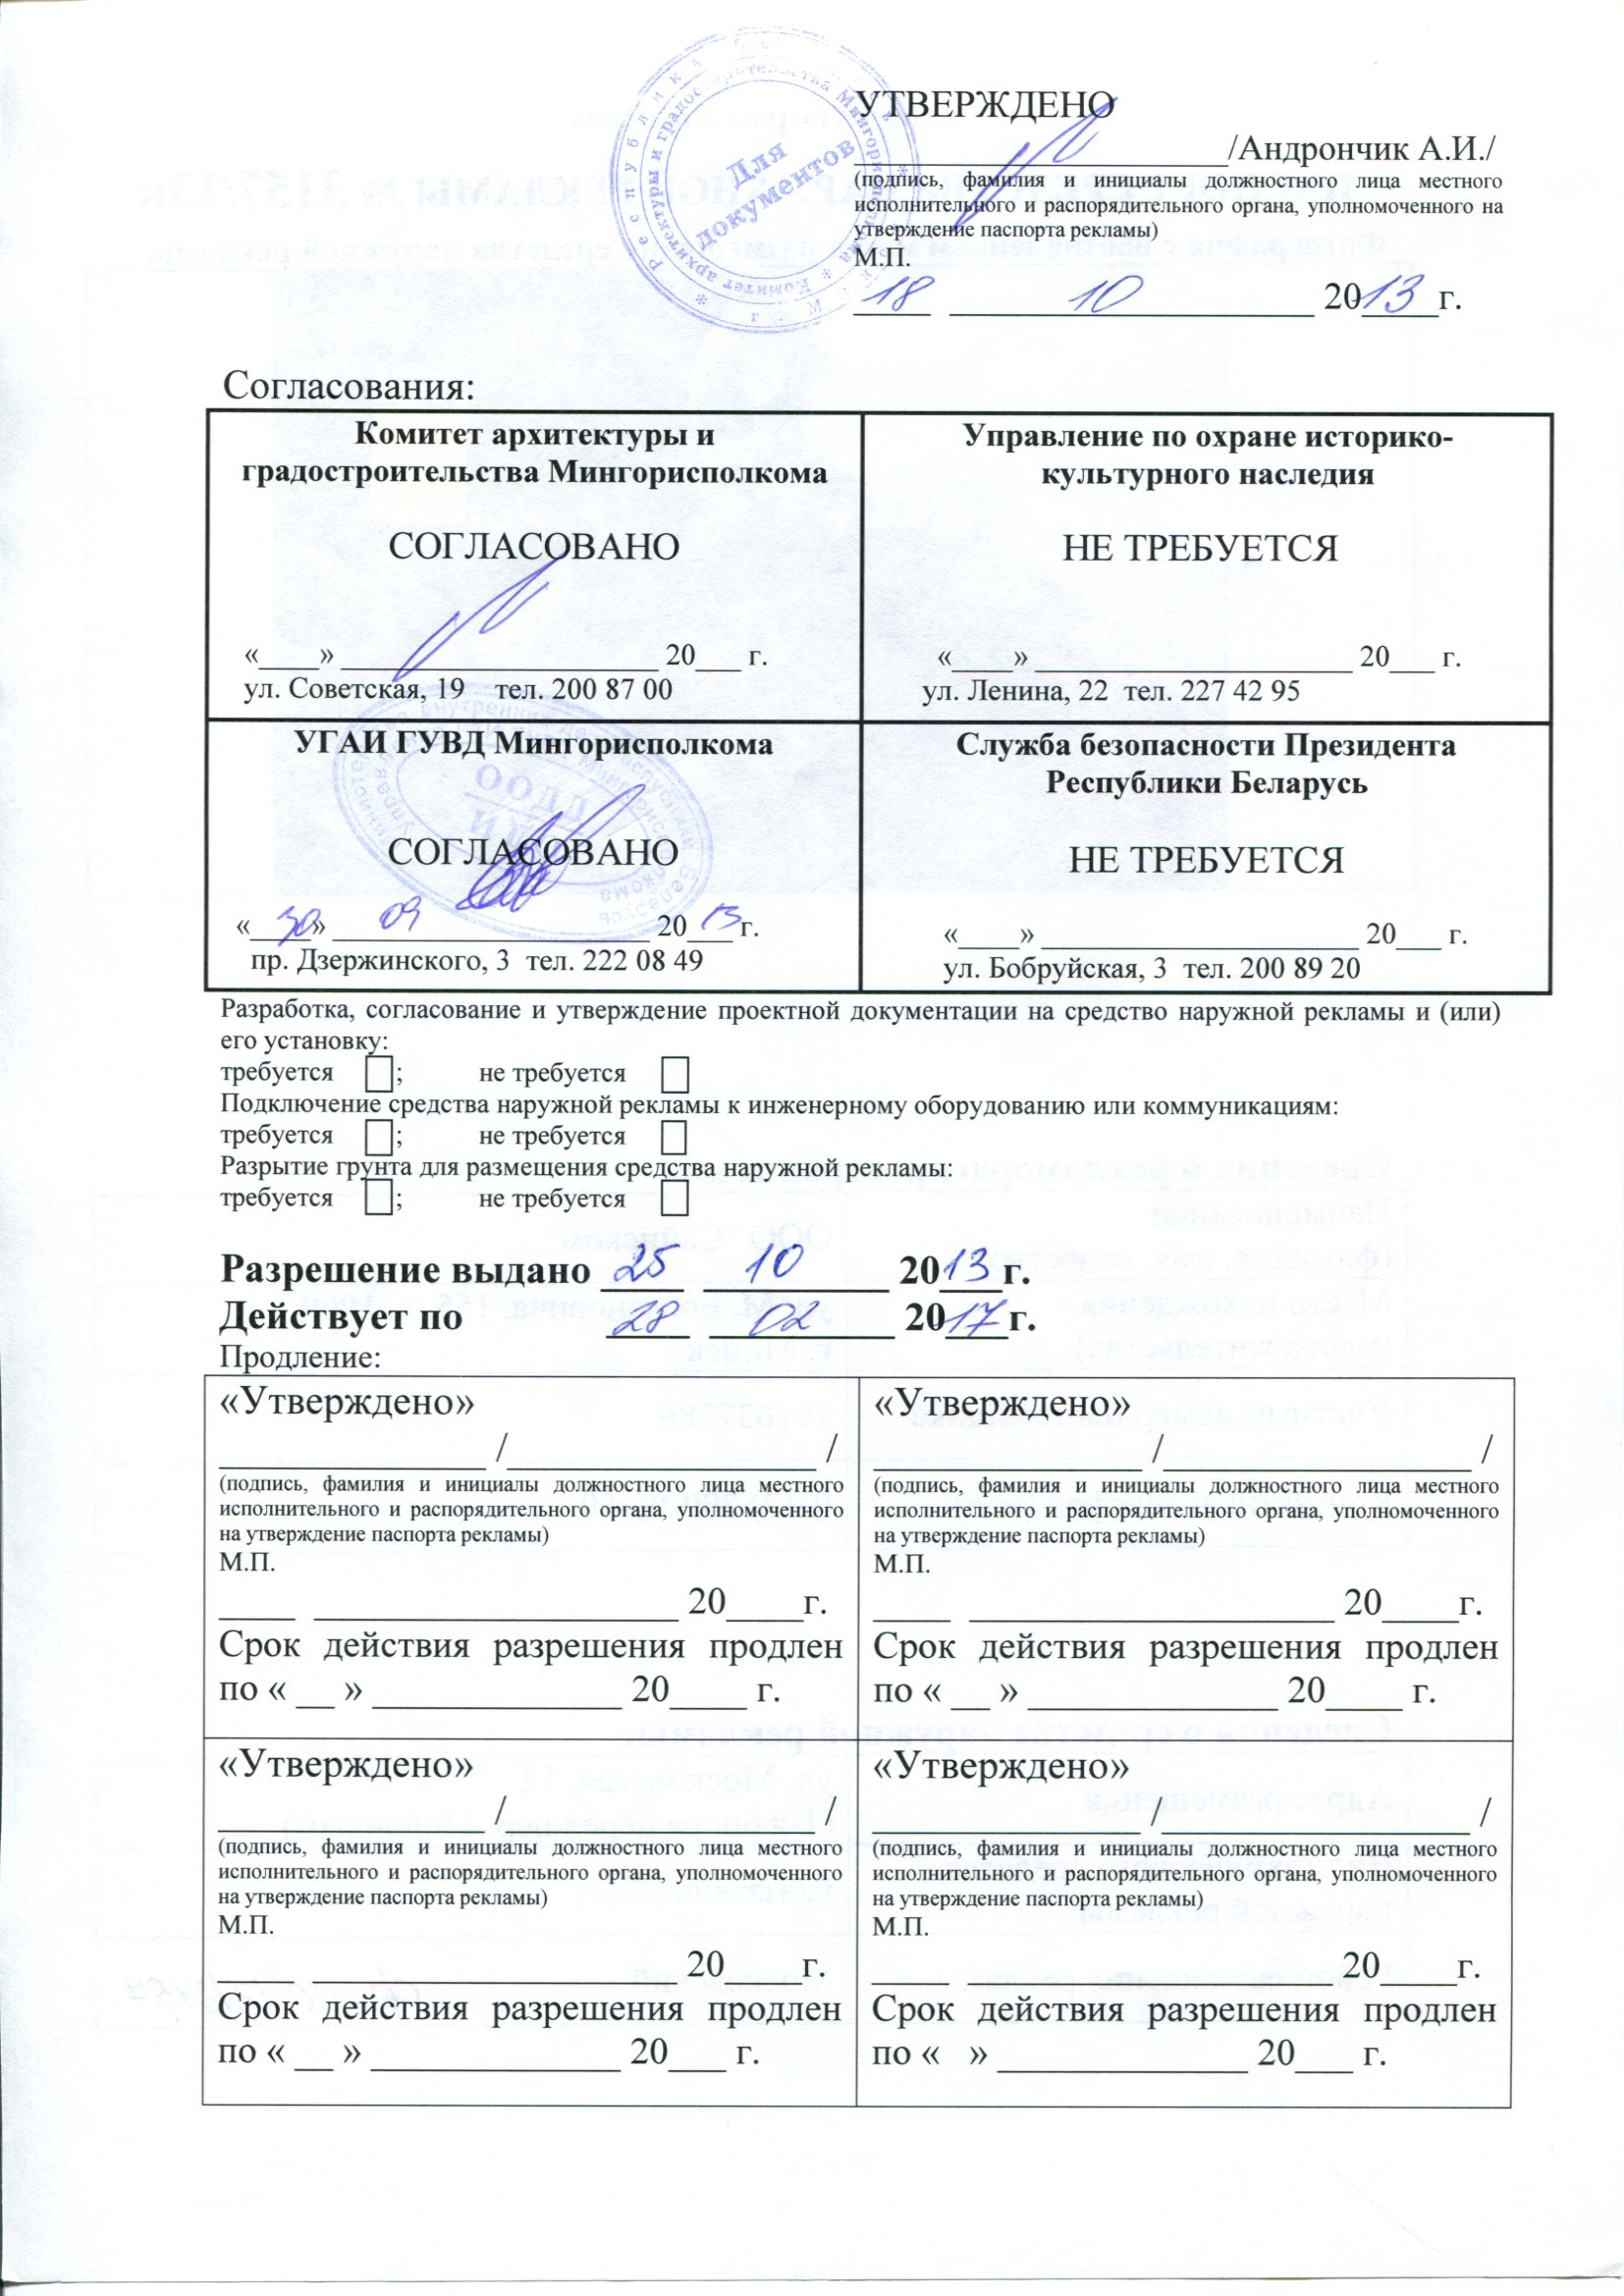 УТВЕРЖДЕНО
____________________/Андрончик А.И./
(подпись, фамилия и инициалы должностного лица местного
исполнительного и распорядительного органа, уполномоченного на
утверждение паспорта рекламы)
М.П.
18 10 2013 г.
Для
документов
Согласования:
Комитет архитектуры и
градостроительства Мингорисполкома
СОГЛАСОВАНО
«____» _____________________ 20___ г.
ул. Советская, 19 тел. 200 87 00
Управление по охране историко-
культурного наследия
НЕ ТРЕБУЕТСЯ
«____» _____________________ 20___ г.
ул. Ленина, 22 тел. 227 42 95
УГАИ ГУВД Мингорисполкома
СОГЛАСОВАНО
«30» 09 2013 г.
пр. Дзержинского, 3 тел. 222 08 49
Служба безопасности Президента
Республики Беларусь
НЕ ТРЕБУЕТСЯ
«____» _____________________ 20___ г.
ул. Бобруйская, 3 тел. 200 89 20
Разработка, согласование и утверждение проектной документации на средство наружной рекламы и (или)
его установку:
требуется ☐; не требуется ☐
Подключение средства наружной рекламы к инженерному оборудованию или коммуникациям:
требуется ☐; не требуется ☐
Разрытие грунта для размещения средства наружной рекламы:
требуется ☐; не требуется ☐
Разрешение выдано 25 10 2013 г.
Действует по 28 02 2017 г.
Продление:
«Утверждено»
______________ /________________ /
(подпись, фамилия и инициалы должностного лица местного
исполнительного и распорядительного органа, уполномоченного
на утверждение паспорта рекламы)
М.П.
____ ___________________ 20____г.
Срок действия разрешения продлен
по « __ » _____________ 20____ г.
«Утверждено»
______________ /________________ /
(подпись, фамилия и инициалы должностного лица местного
исполнительного и распорядительного органа, уполномоченного
на утверждение паспорта рекламы)
М.П.
____ ___________________ 20____г.
Срок действия разрешения продлен
по « __ » _____________ 20____ г.
«Утверждено»
______________ /________________ /
(подпись, фамилия и инициалы должностного лица местного
исполнительного и распорядительного органа, уполномоченного
на утверждение паспорта рекламы)
М.П.
____ ___________________ 20____г.
Срок действия разрешения продлен
по « __ » _____________ 20___ г.
«Утверждено»
______________ /________________ /
(подпись, фамилия и инициалы должностного лица местного
исполнительного и распорядительного органа, уполномоченного
на утверждение паспорта рекламы)
М.П.
____ ___________________ 20____г.
Срок действия разрешения продлен
по « » _____________ 20___ г.